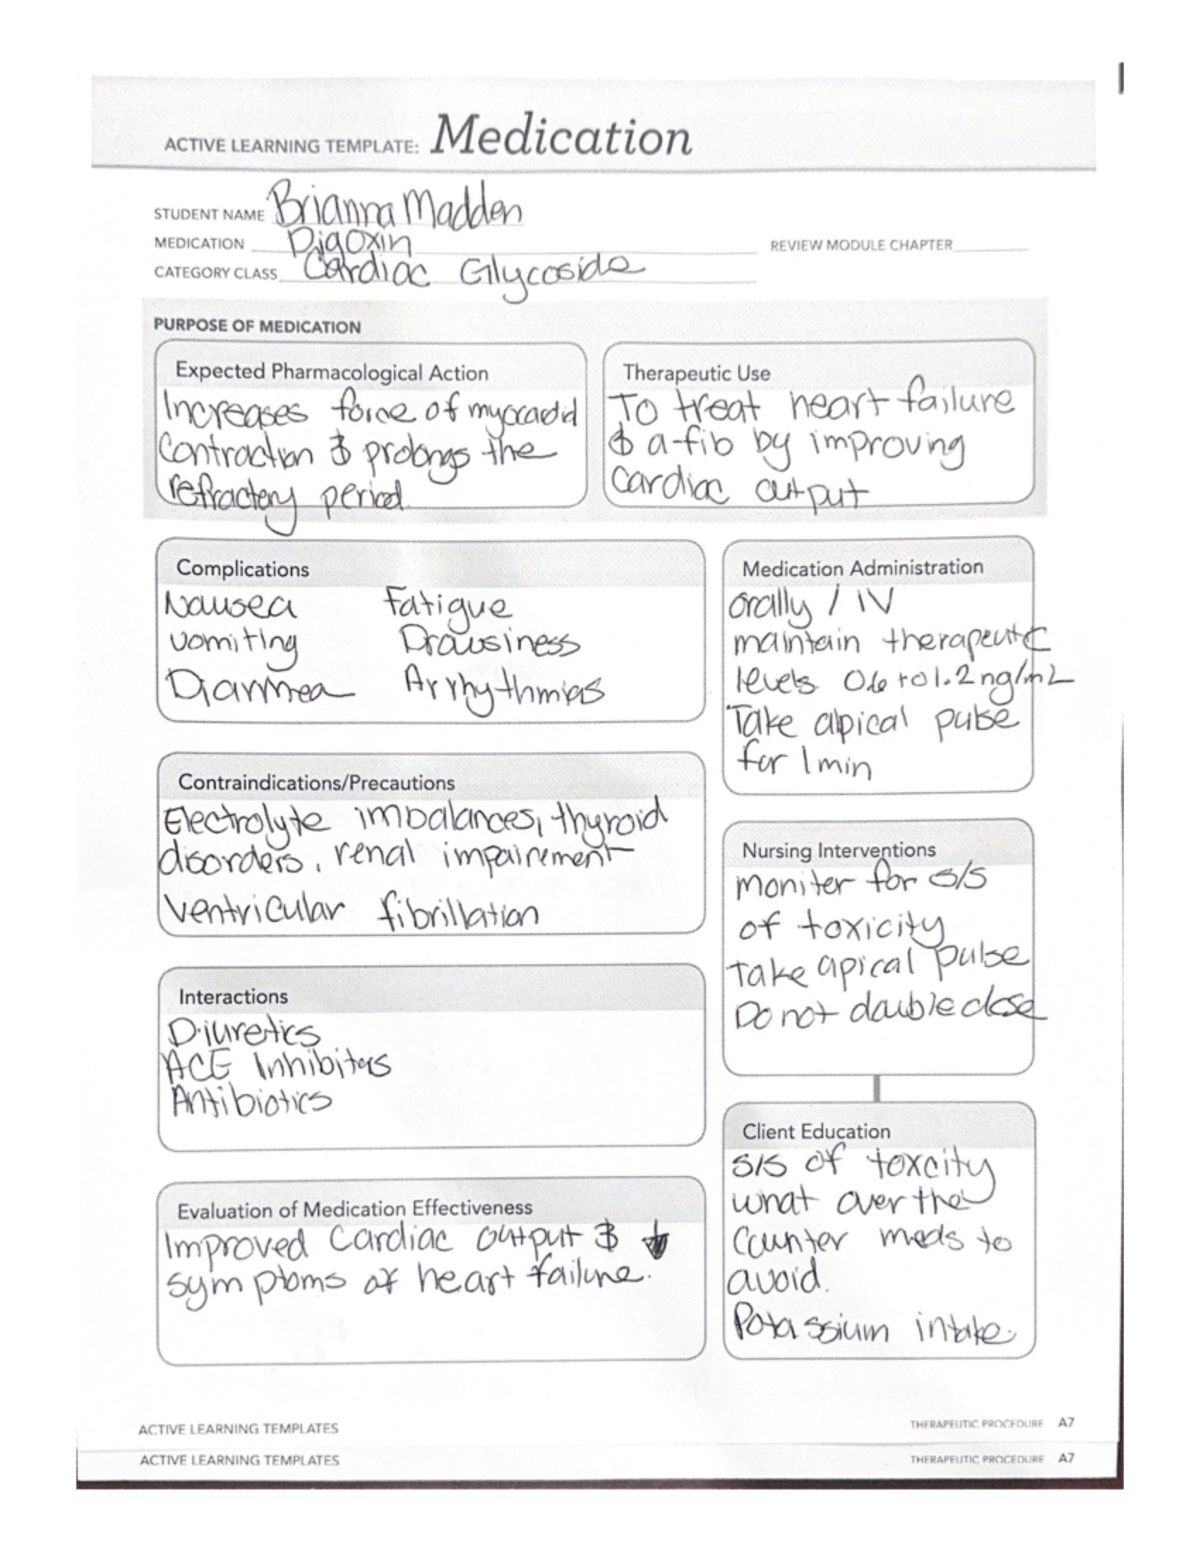 ACTIVE LEARNING TEMPLATE: Medication
STUDENT NAME Brianna Madden
MEDICATION Digoxin
REVIEW MODULE CHAPTER
CATEGORY CLASS Cardiac Glycoside
PURPOSE OF MEDICATION
Expected Pharmacological Action
Increases force of myocardial
contraction & prolongs the
refractory period.
Therapeutic Use
To treat heart failure
& a-fib by improving
cardiac output
Complications
Nausea Fatigue
vomiting Drowsiness
Diarrhea Arrhythmias
Medication Administration
Orally / IV
maintain therapeutic
levels 0.6 to 1.2 ng/mL
Take apical pulse
for 1 min
Contraindications/Precautions
Electrolyte imbalances, thyroid
disorders, renal impairement
Ventricular fibrillation
Nursing Interventions
moniter for s/s
of toxicity
Take apical pulse
Do not double dose
Interactions
Diuretics
ACE Inhibitors
Antibiotics
Client Education
S/S of toxcity
what over the
counter meds to
avoid.
Potassium intake.
Evaluation of Medication Effectiveness
Improved cardiac output & ↓
symptoms of heart failure.
ACTIVE LEARNING TEMPLATES
THERAPEUTIC PROCEDURE A7
ACTIVE LEARNING TEMPLATES
THERAPEUTIC PROCEDURE A7